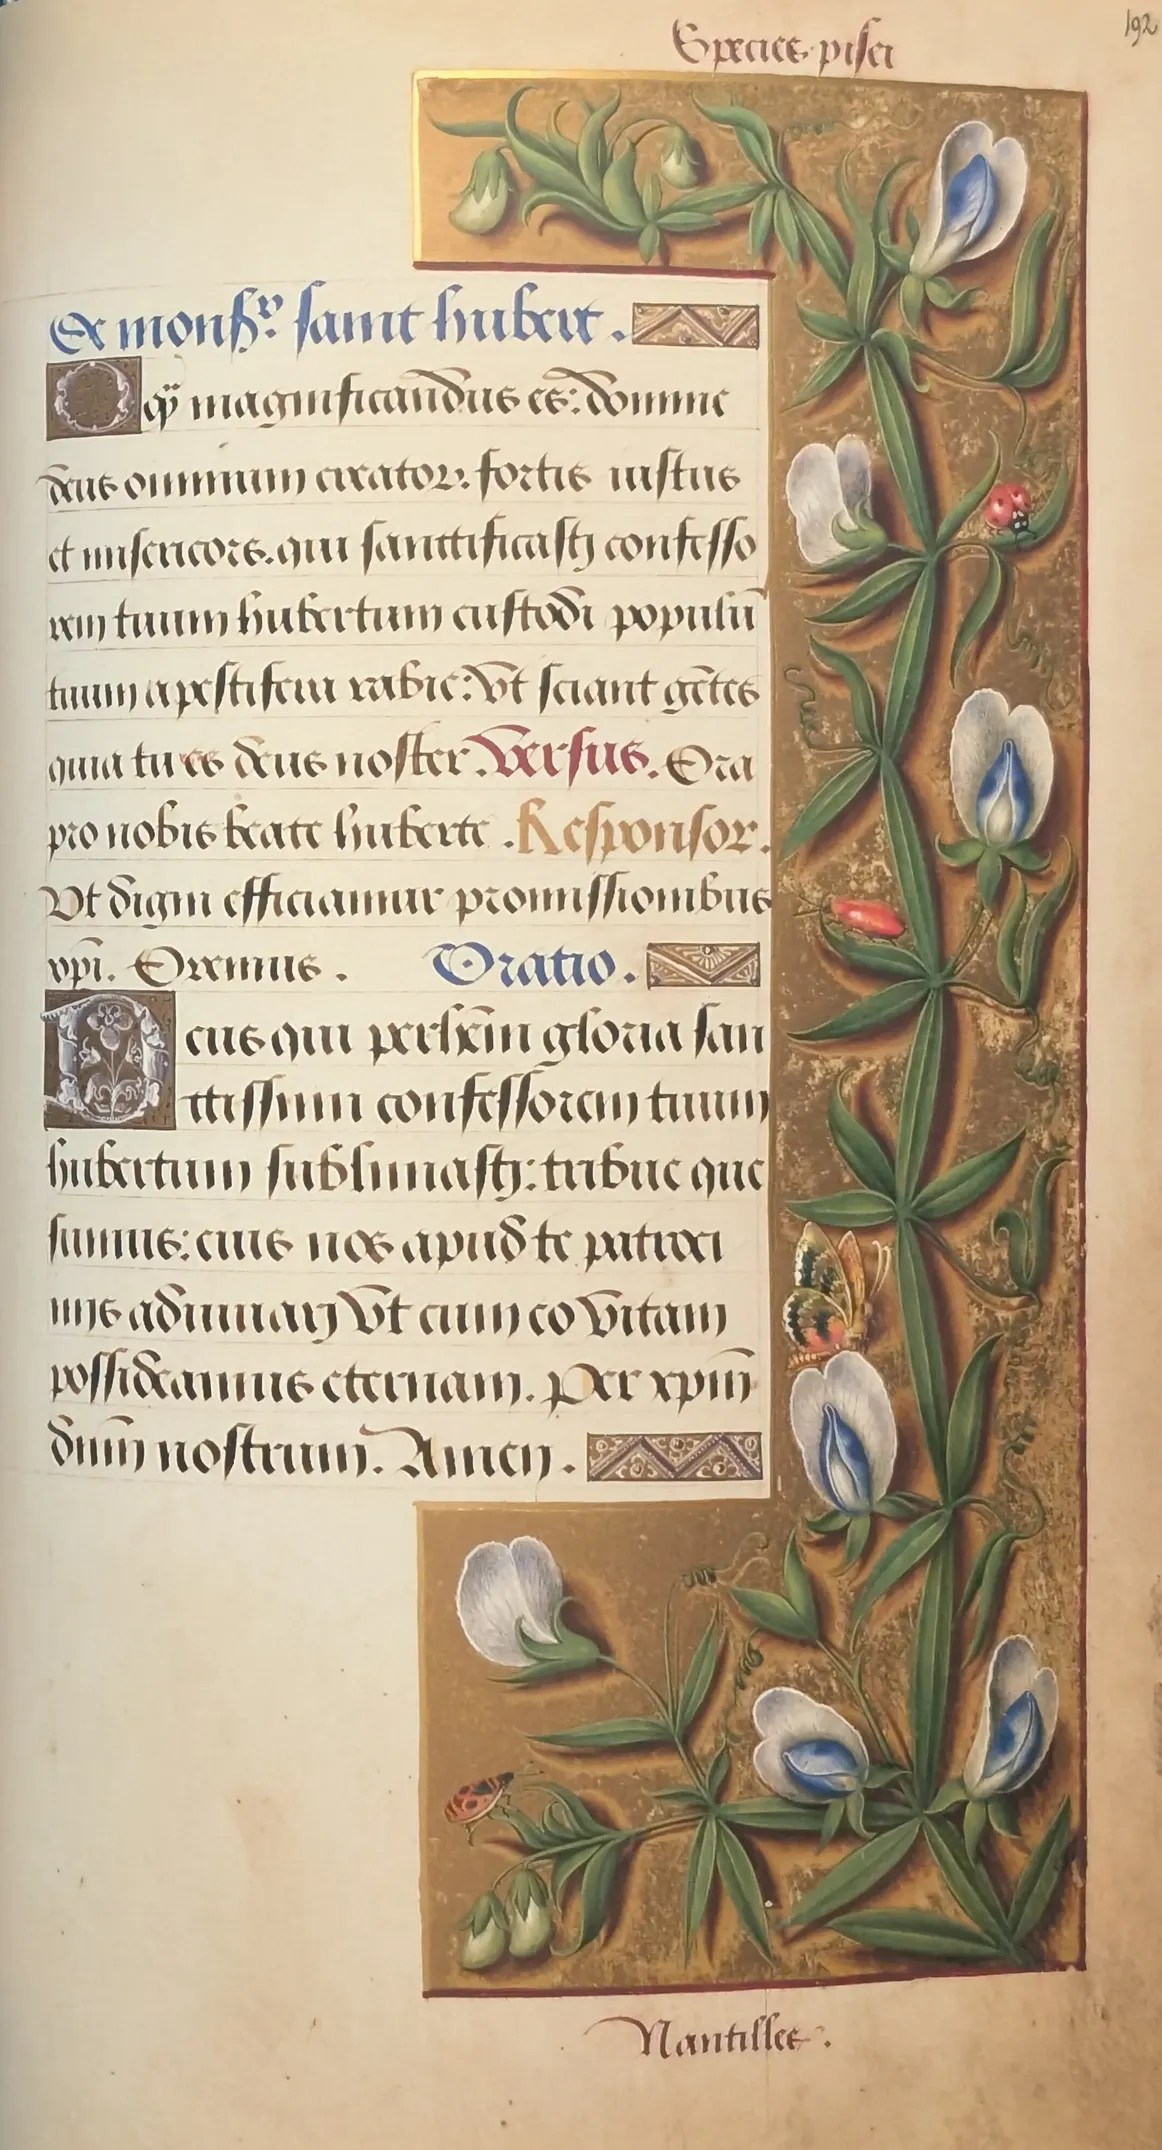 192
Species pisci
De monsr. saint hubert.
O q̃ magnificandus es: domine
deus omnium creator. fortis iustus
et misericors. qui sanctificasti confesso
rem tuum hubertum custodi populũ
tuum a pestifera rabie: Vt sciant gẽtes
quia tu es deus noster. Versus. Ora
pro nobis beate huberte. Responsor.
Vt digni efficiamur promissionibus
xp̃i. Oremus. Oratio.
Deus qui perhẽm gloria san
ctissimum confessorem tuum
hubertum sublimasti: tribue que
sumus: eius nos apud te patroci
niis adiuuari Vt cum eo Vitam
possideamus eternam. Per xp̃m
dnm̃ nostrum. Amen.
Nantilles.